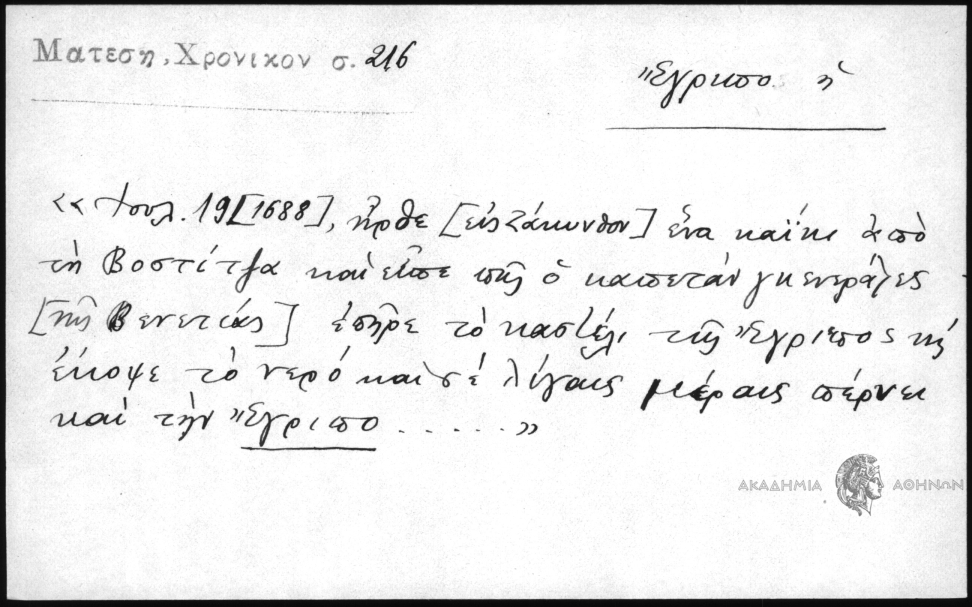 Ματεση, Χρονικον σ. 216
Ἔγριπο ἡ
«Ἰουλ. 19 [1688], ἦρθε [εἰς Ζάκυνθον] ἕνα καΐκι ἀπὸ
τὴ Βοστίτζα καὶ εἶπε πῶς ὁ καπετὰν γκενεράλες
[τῆς Βενετίας] ἐπῆρε τὸ καστέλι τῆς Ἔγριπος τῆς
ἔκοψε τὸ νερό καὶ σὲ λίγαις μέραις πέρνει
καὶ τὴν Ἔγριπο . . . . . .»
ΑΚΑΔΗΜΙΑ ΑΘΗΝΩΝ